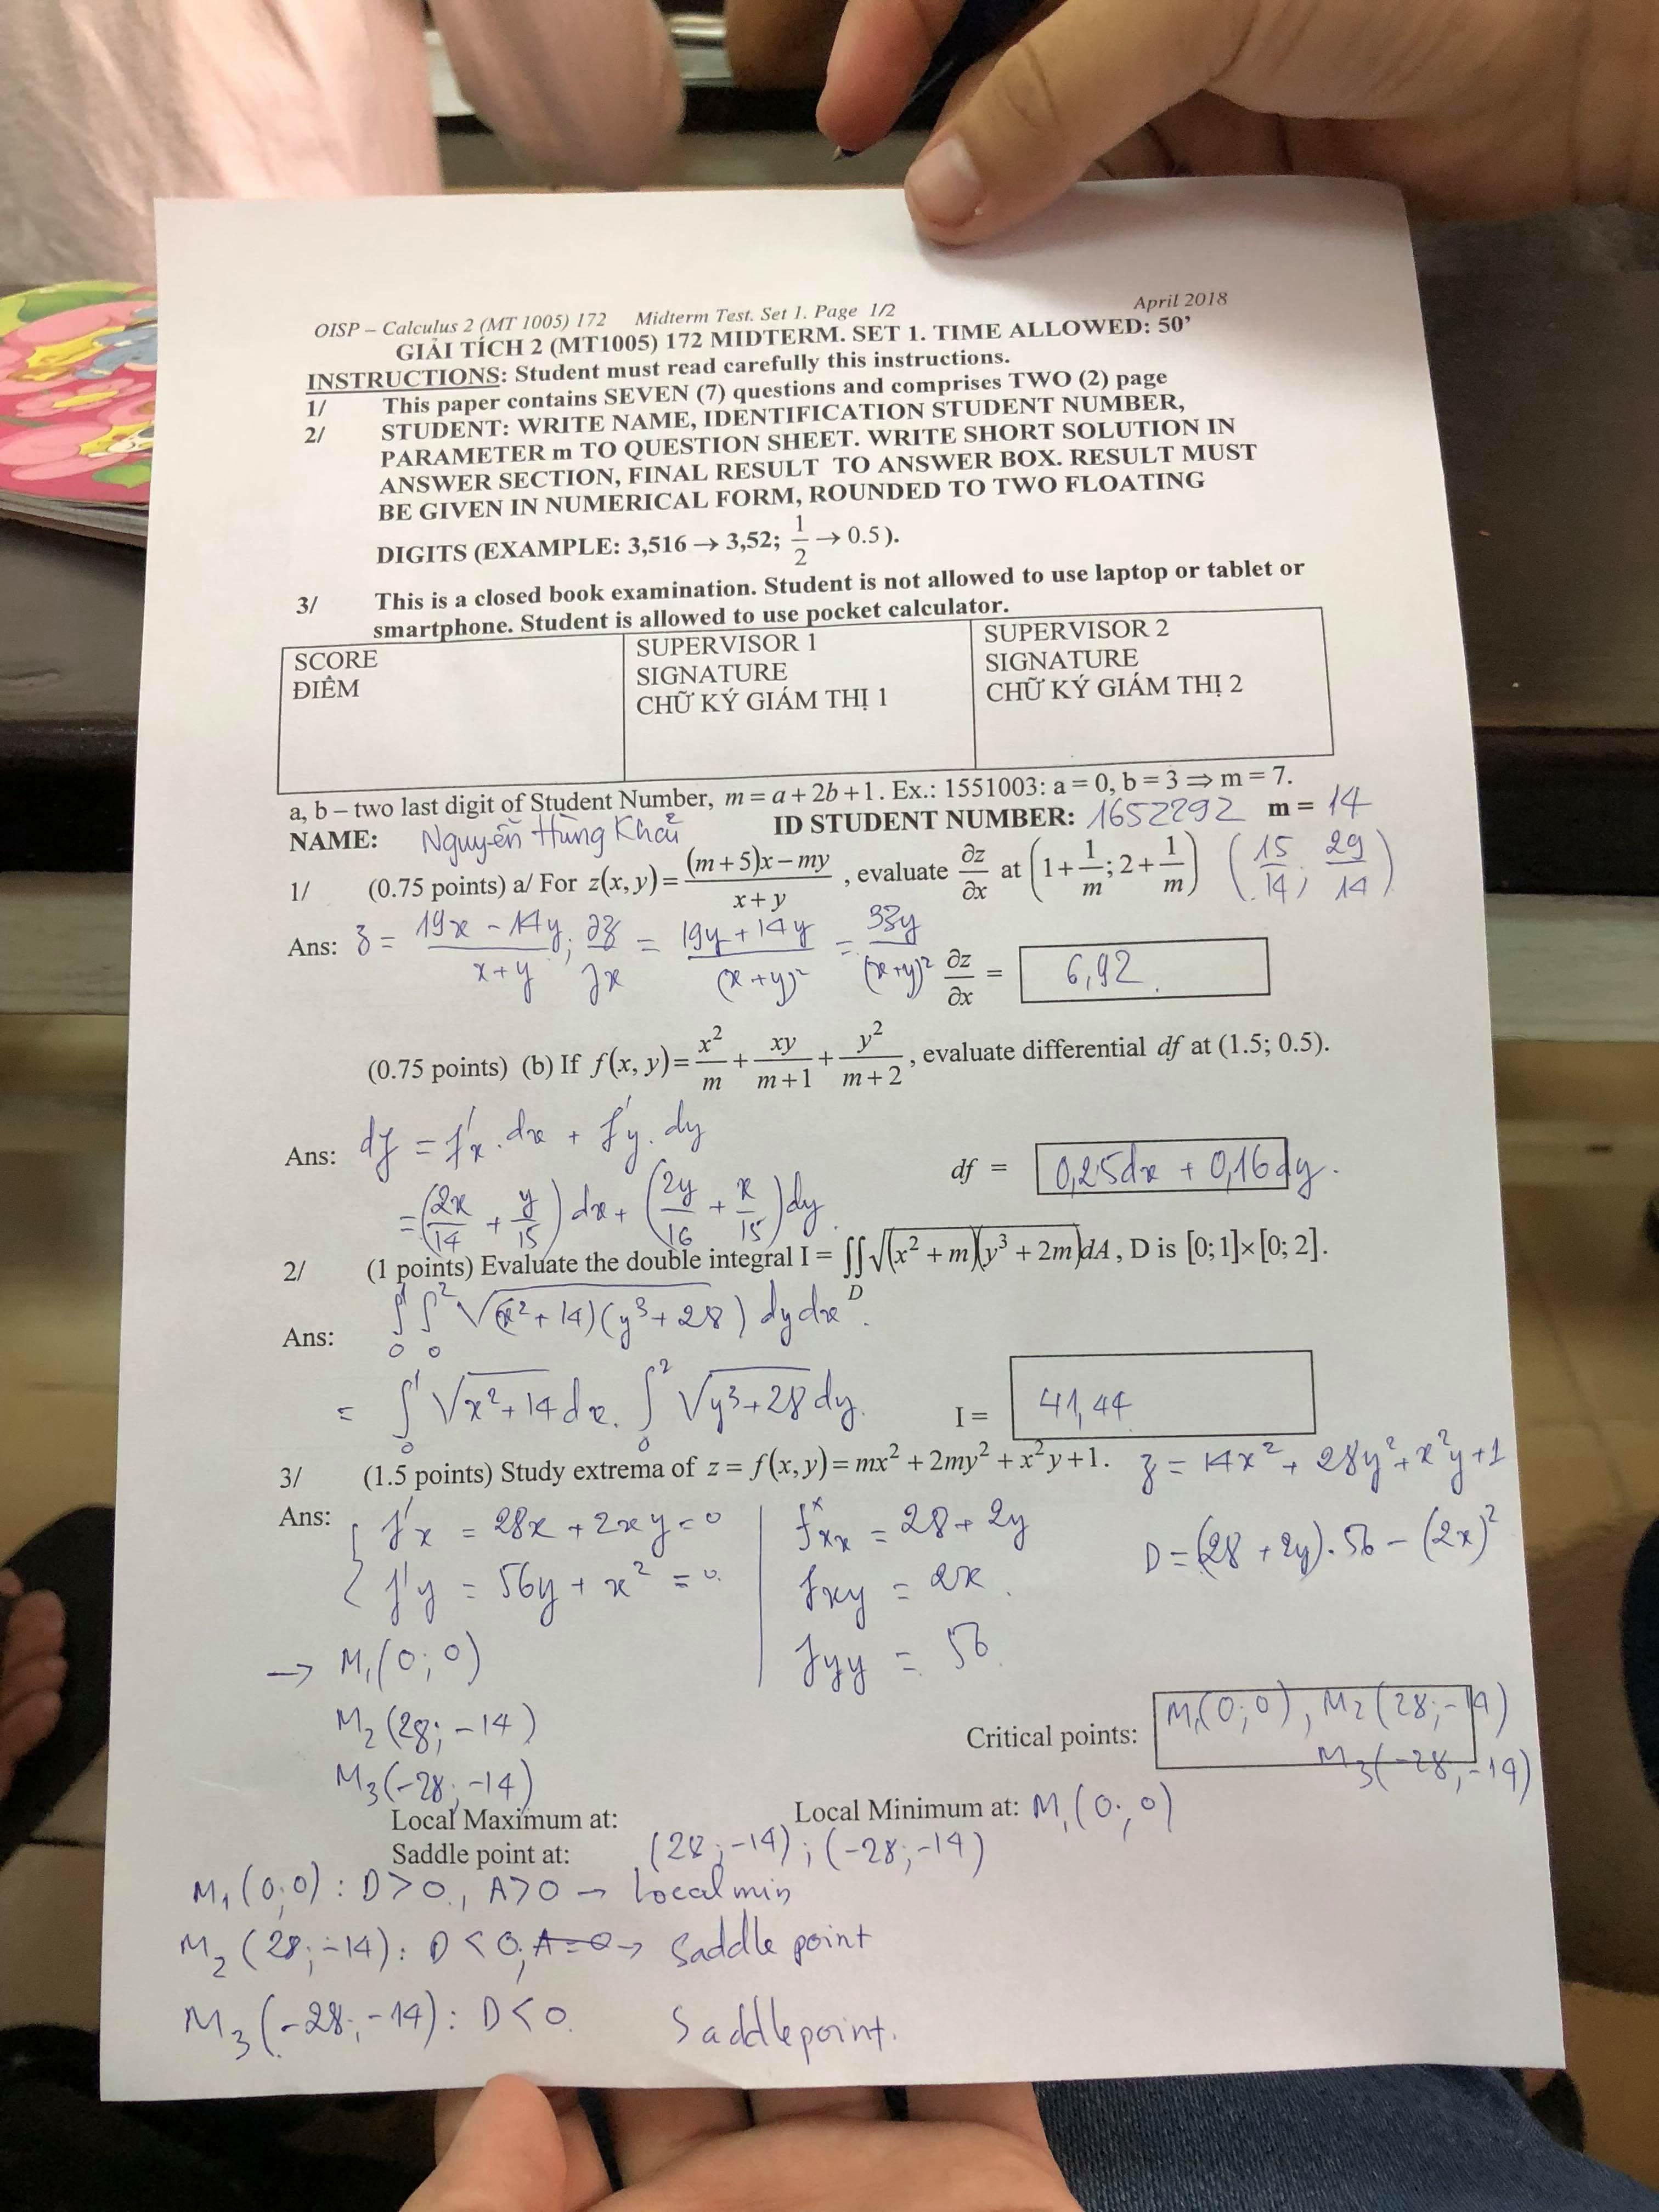 OISP – Calculus 2 (MT 1005) 172 Midterm Test. Set 1. Page 1/2 April 2018
GIẢI TÍCH 2 (MT1005) 172 MIDTERM. SET 1. TIME ALLOWED: 50'
INSTRUCTIONS: Student must read carefully this instructions.
1/ This paper contains SEVEN (7) questions and comprises TWO (2) page
2/ STUDENT: WRITE NAME, IDENTIFICATION STUDENT NUMBER,
PARAMETER m TO QUESTION SHEET. WRITE SHORT SOLUTION IN
ANSWER SECTION, FINAL RESULT TO ANSWER BOX. RESULT MUST
BE GIVEN IN NUMERICAL FORM, ROUNDED TO TWO FLOATING
DIGITS (EXAMPLE: 3,516 → 3,52; 1/2 → 0.5 ).
3/ This is a closed book examination. Student is not allowed to use laptop or tablet or
smartphone. Student is allowed to use pocket calculator.
SCORE
ĐIỂM
SUPERVISOR 1
SIGNATURE
CHỮ KÝ GIÁM THỊ 1
SUPERVISOR 2
SIGNATURE
CHỮ KÝ GIÁM THỊ 2
a, b – two last digit of Student Number, m = a + 2b + 1. Ex.: 1551003: a = 0, b = 3 ⇒ m = 7.
NAME: Nguyễn Hùng Khải ID STUDENT NUMBER: 1652292 m = 14
1/ (0.75 points) a/ For z(x, y) = ((m + 5)x − my)/(x + y), evaluate ∂z/∂x at (1 + 1/m; 2 + 1/m) (15/14; 29/14)
Ans: z = (19x − 14y)/(x + y); ∂z/∂x = (19y + 14y)/(x + y)² = 33y/(x+y)² ∂z/∂x = 6,92
(0.75 points) (b) If f(x, y) = x²/m + xy/(m + 1) + y²/(m + 2), evaluate differential df at (1.5; 0.5).
Ans: df = f'x . dx + f'y . dy
df = 0,25dx + 0,16dy.
= (2x/14 + y/15) dx + (2y/16 + x/15) dy.
2/ (1 points) Evaluate the double integral I = ∬_D √((x² + m)(y³ + 2m)) dA, D is [0; 1] × [0; 2].
Ans: ∫₀¹ ∫₀² √((x² + 14)(y³ + 28)) dy dx.
= ∫₀¹ √(x² + 14) dx. ∫₀² √(y³ + 28) dy. I = 41,44
3/ (1.5 points) Study extrema of z = f(x, y) = mx² + 2my² + x²y + 1. z = 14x² + 28y² + x²y + 1
Ans: { f'x = 28x + 2xy = 0
f'y = 56y + x² = 0.
fxx = 28 + 2y
fxy = 2x.
fyy = 56.
D = (28 + 2y). 56 − (2x)²
→ M₁(0; 0)
M₂(28; −14)
M₃(−28; −14)
Critical points: M₁(0; 0), M₂(28; −14)
M₃(−28; −14)
Local Maximum at: Local Minimum at: M₁(0; 0)
Saddle point at: (28; −14); (−28; −14)
M₁(0; 0): D > 0, A > 0 → Local min
M₂(28; −14): D < 0, A = 0 → Saddle point
M₃(−28; −14): D < 0. Saddle point.